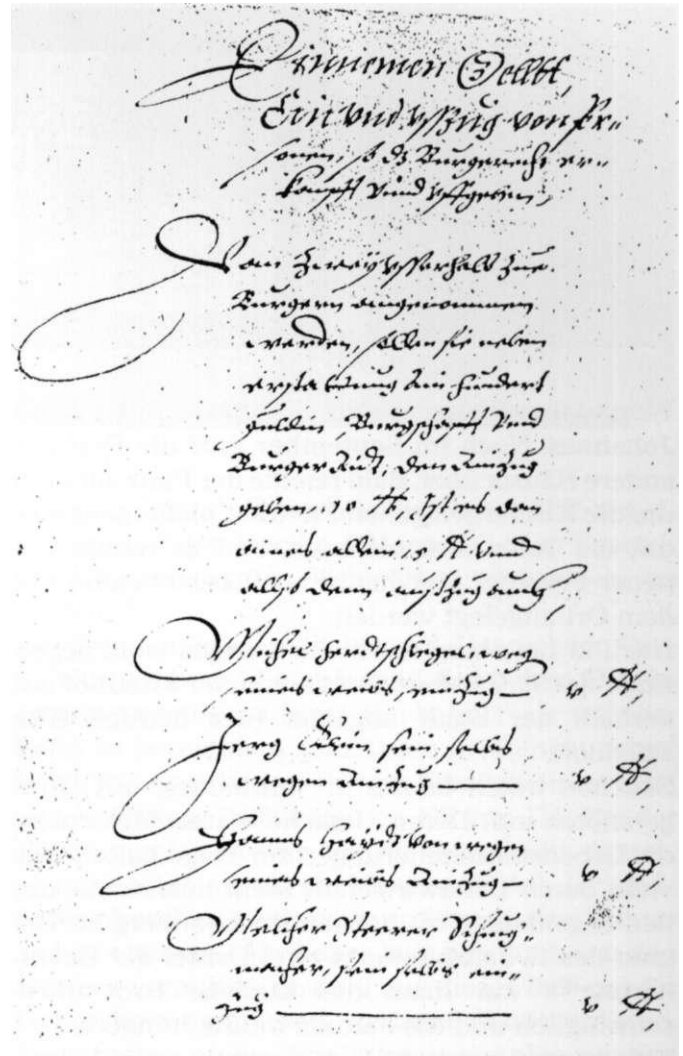 Einnemen Gellt
Ein vnd vßzug von Per-
sonen, so dz Burgerecht er-
kaufft vnnd vffgeben,
Wan zwey vsserhalb zue
Burgern angenommen
werden, sollen sie neben
erstattung ein hundert
gulden, Burgschafft vnd
Burger Aidt, den Einzug
geben, 10 ℔, Ist es dan
aines allein, 5 ℔ vnd
allso dem ausszug auch
Michel herdtschlegel, weg
seines weibs einzug v ℔
Jerg sein selbs
wegen Einzug v ℔
Hanns Haydt von wegen
seines weibs Einzug v ℔
Melcher Steerer Schug-
macher, sein selbs ein-
Zug v ℔